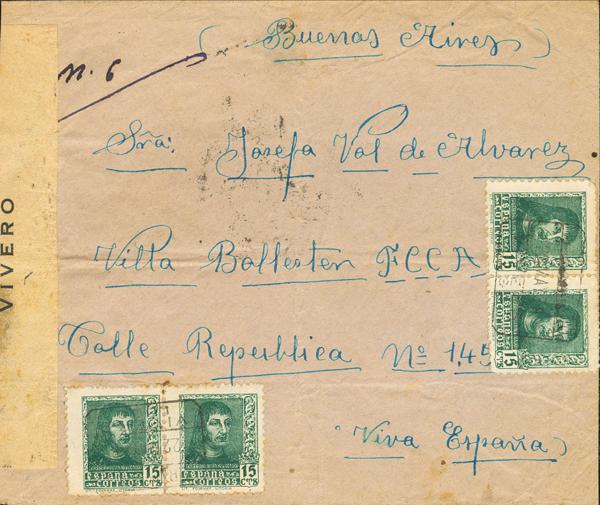 (Buenos Aires)
n. 6
VIVERO
Sña: Josefa Val de Alvarez
Villa Ballester F.C.C.A
Calle Republica Nº 1,45
(Viva España)
15
ESPAÑA
CORREOS CTS
15
ESPAÑA
CORREOS CTS
ESPAÑA 15
CORREOS CTS
ESPAÑA 15
CORREOS CTS